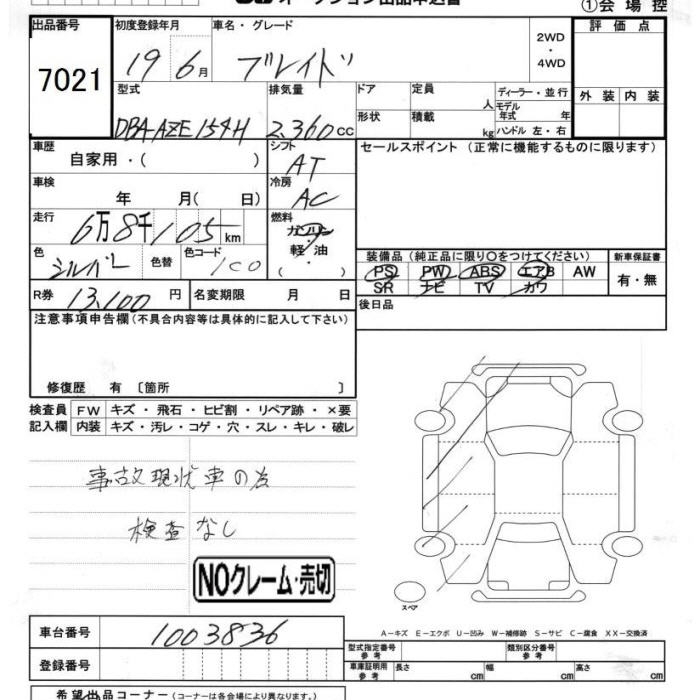 ①会場控
出品番号 初度登録年月 車名・グレード 評価点
7021 19 6月 ブレイド 2WD・4WD
型式 排気量 ドア 定員 人 ディーラー・並行 外装 内装
DBA-AZE154H 2,360cc 形状 積載 kg モデル年式 年 ハンドル 左・右
車歴 自家用・( ) シフト AT セールスポイント (正常に機能するものに限ります)
車検 年 月( 日) 冷房 AC
走行 6万8千105km 燃料 ガソリン・軽油・( )
色 シルバー 色替 色コード 1C0 装備品 (純正品に限り○をつけてください) 新車保証書
PS PW ABS エアB AW 有・無
SR ナビ TV カワ
R券 13,100円 名変期限 月 日 後日品
注意事項申告欄(不具合内容等は具体的に記入して下さい)
修復歴 有 〔箇所 〕
検査員 FW キズ・飛石・ヒビ割・リペア跡・×要
記入欄 内装 キズ・汚レ・コゲ・穴・スレ・キレ・破レ
事故現状車の為
検査なし
NOクレーム・売切
スペア
A−キズ E−エクボ U−凹み W−補修跡 S−サビ C−腐食 XX−交換済
車台番号 1003836
型式指定番号 参考 類別区分番号 参考
登録番号 車庫証明用 参考 長さ cm 幅 cm 高さ cm
希望出品コーナー(コーナーは各会場により異なります。)